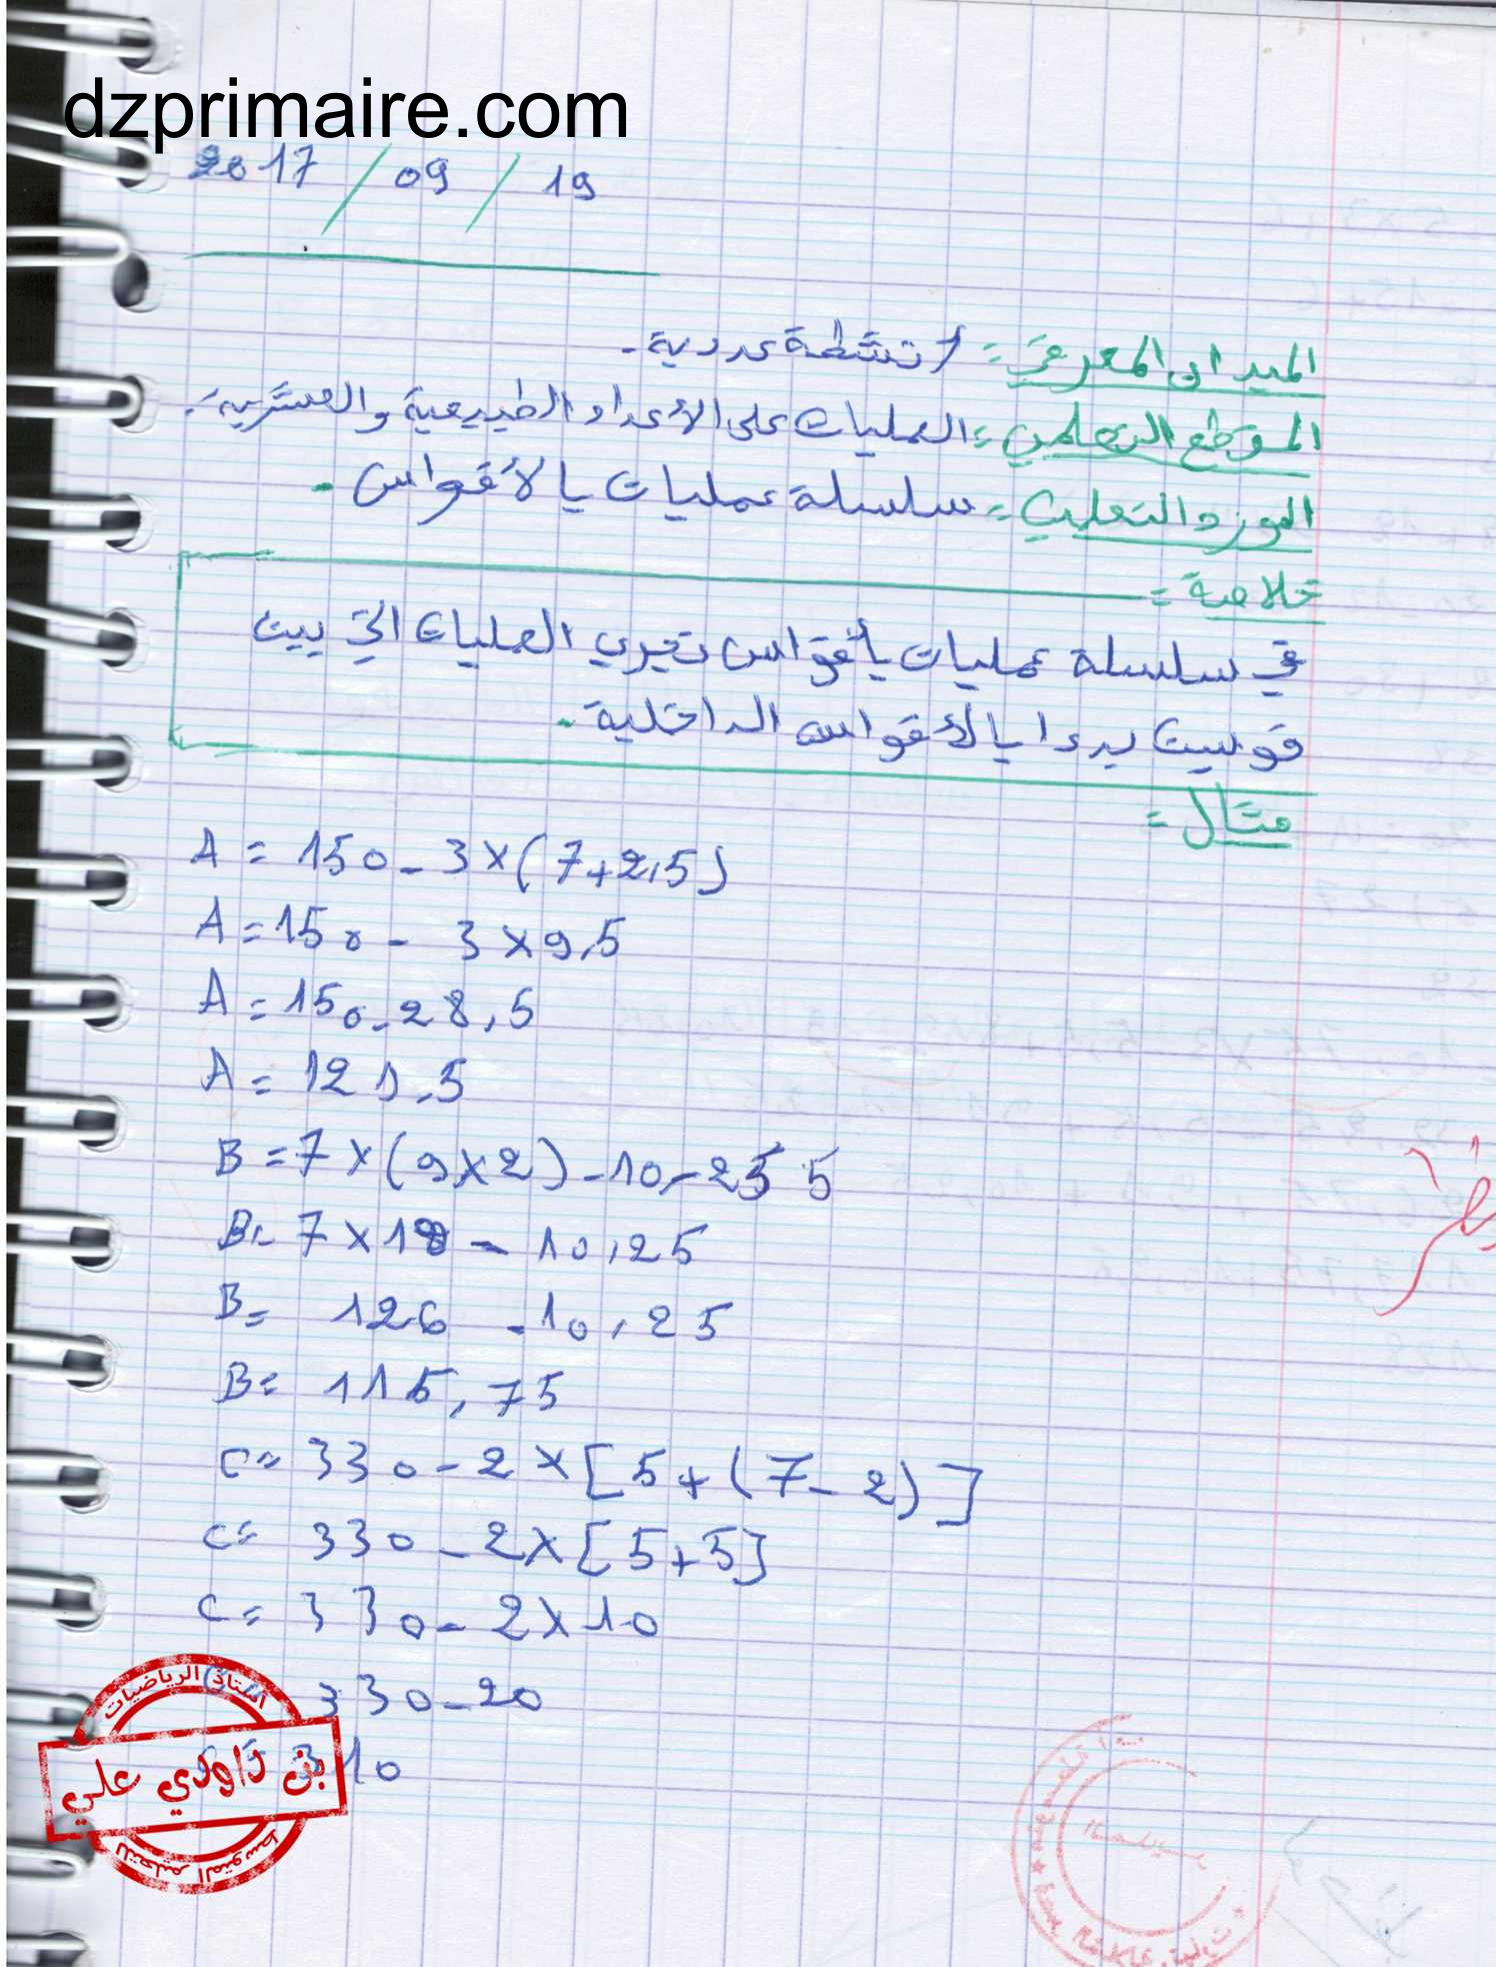 dzprimaire.com
2017 / 09 / 19
الميدان المعرفي = أنشطة عددية.
المقطع التعلمي = العمليات على الأعداد الطبيعية والعشرية.
المورد التعلمي = سلسلة عمليات بالأقواس.
خلاصة =
في سلسلة عمليات بأقواس نجري العمليات التي بين
قوسين بدءا بالأقواس الداخلية.
مثال =
A = 150 - 3 × (7 + 2,5)
A = 150 - 3 × 9,5
A = 150 - 28,5
A = 121,5
B = 7 × (9 × 2) - 10,25
B = 7 × 18 - 10,25
B = 126 - 10,25
B = 115,75
C = 330 - 2 × [5 + (7 - 2)]
C = 330 - 2 × [5 + 5]
C = 330 - 2 × 10
330 - 20
310
أستاذ الرياضيات
بن داودي علي
للتعليم المتوسط